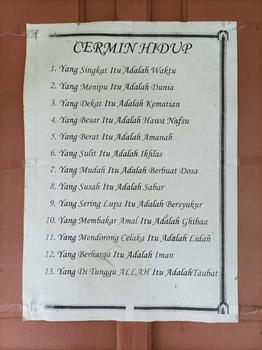 CERMIN HIDUP
1. Yang Singkat Itu Adalah Waktu
2. Yang Menipu Itu Adalah Dunia
3. Yang Dekat Itu Adalah Kematian
4. Yang Besar Itu Adalah Hawa Nafsu
5. Yang Berat Itu Adalah Amanah
6. Yang Sulit Itu Adalah Ikhlas
7. Yang Mudah Itu Adalah Berbuat Dosa
8. Yang Susah Itu Adalah Sabar
9. Yang Sering Lupa Itu Adalah Bersyukur
10. Yang Membakar Amal Itu Adalah Ghibaa
11. Yang Mendorong Celaka Itu Adalah Lidah
12. Yang Berharga Itu Adalah Iman
13. Yang Di Tunggu ALLAH Itu AdalahTaubat